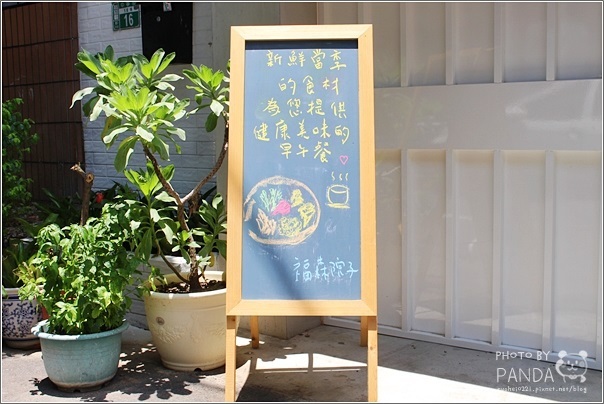 16
新鮮當季
的食材
為您提供
健康美味的
早午餐
福森院子
PHOTO BY
PANDA